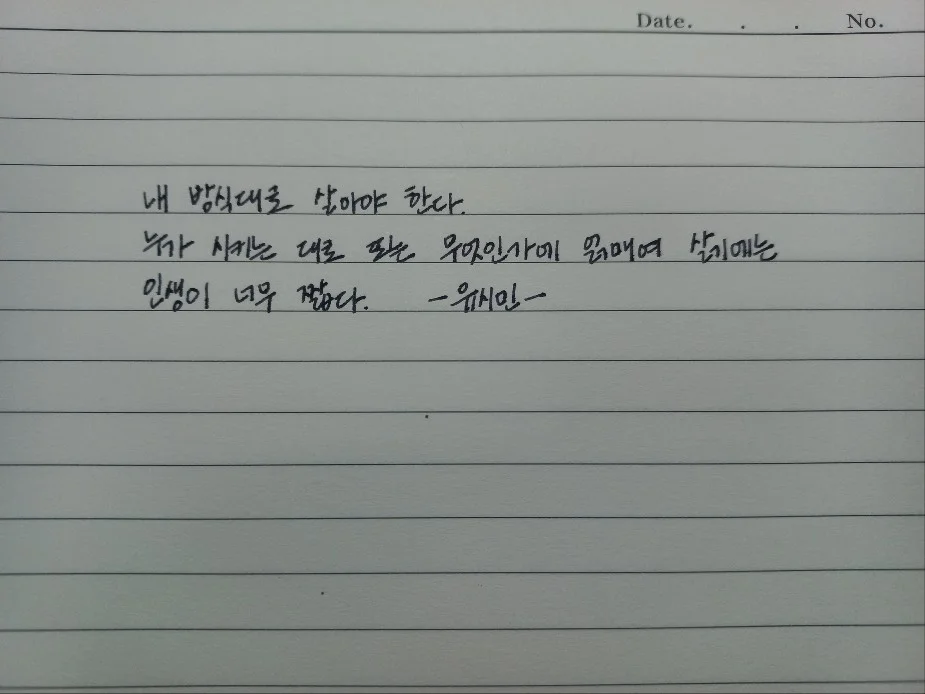 Date. . . No.
내 방식대로 살아야 한다.
누가 시키는 대로 또는 무엇인가에 얽매여 살기에는
인생이 너무 짧다. -유시민-